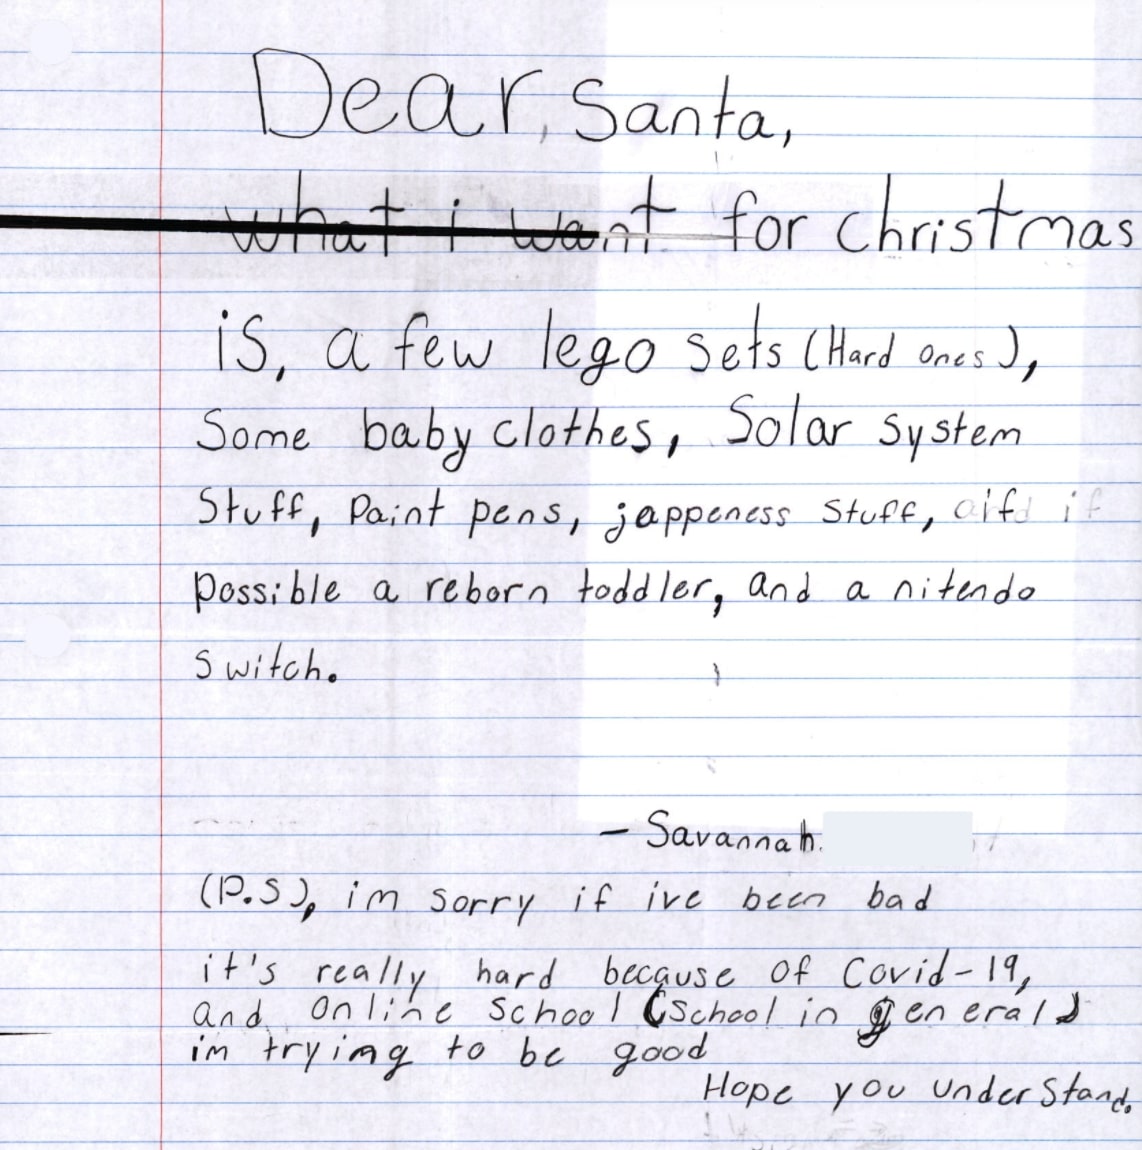 Dear, Santa,
what i want for christmas
is, a few lego sets (Hard ones),
Some baby clothes, Solar system
Stuff, Paint pens, jappeness stuff, and if
possible a reborn toddler, and a nitendo
switch.
- Savannah.
(P.S), im sorry if ive been bad
it's really hard because of Covid-19,
and online school (school in general)
im trying to be good
Hope you understand.